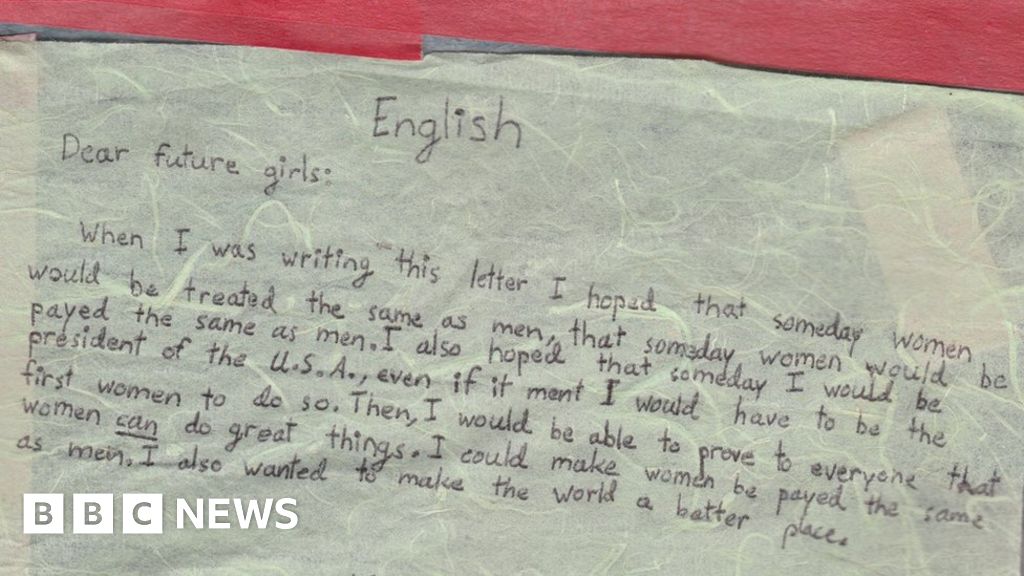 English
Dear future girls:
When I was writing this letter I hoped that someday women
would be treated the same as men, that someday women would be
payed the same as men. I also hoped that someday I would be
president of the U.S.A., even if it ment I would have to be the
first women to do so. Then, I would be able to prove to everyone that
women can do great things. I could make women be payed the same
as men. I also wanted to make the world a better place.
BBC NEWS